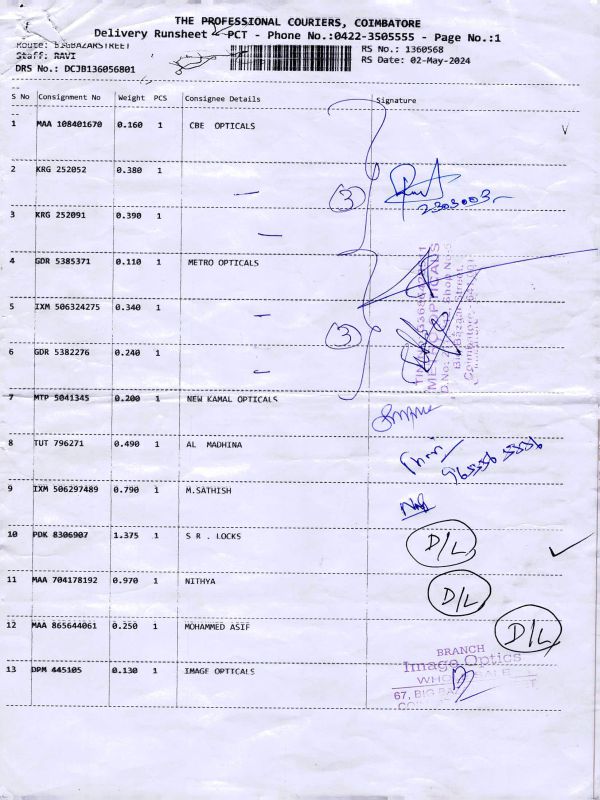 THE PROFESSIONAL COURIERS, COIMBATORE
Delivery Runsheet PCT - Phone No.:0422-3505555 - Page No.:1
Route: BIGBAZARSTREET RS No.: 1360568
Staff: RAVI RS Date: 02-May-2024
DRS No.: DCJB136056801
S No Consignment No Weight PCS Consignee Details Signature
1 MAA 108401670 0.160 1 CBE OPTICALS
2 KRG 252052 0.380 1
3 KRG 252091 0.390 1
(3)
4 GDR 5385371 0.110 1 METRO OPTICALS
5 IXM 506324275 0.340 1
6 GDR 5382276 0.240 1
(3)
7 MTP 5041345 0.200 1 NEW KAMAL OPTICALS
8 TUT 796271 0.490 1 AL MADHINA
9 IXM 506297489 0.790 1 M.SATHISH
10 PDK 8306907 1.375 1 S R . LOCKS D/L
11 MAA 704178192 0.970 1 NITHYA D/L
12 MAA 865644061 0.250 1 MOHAMMED ASIF D/L
13 DPM 445105 0.130 1 IMAGE OPTICALS
BRANCH
Image Optics
67, BIG